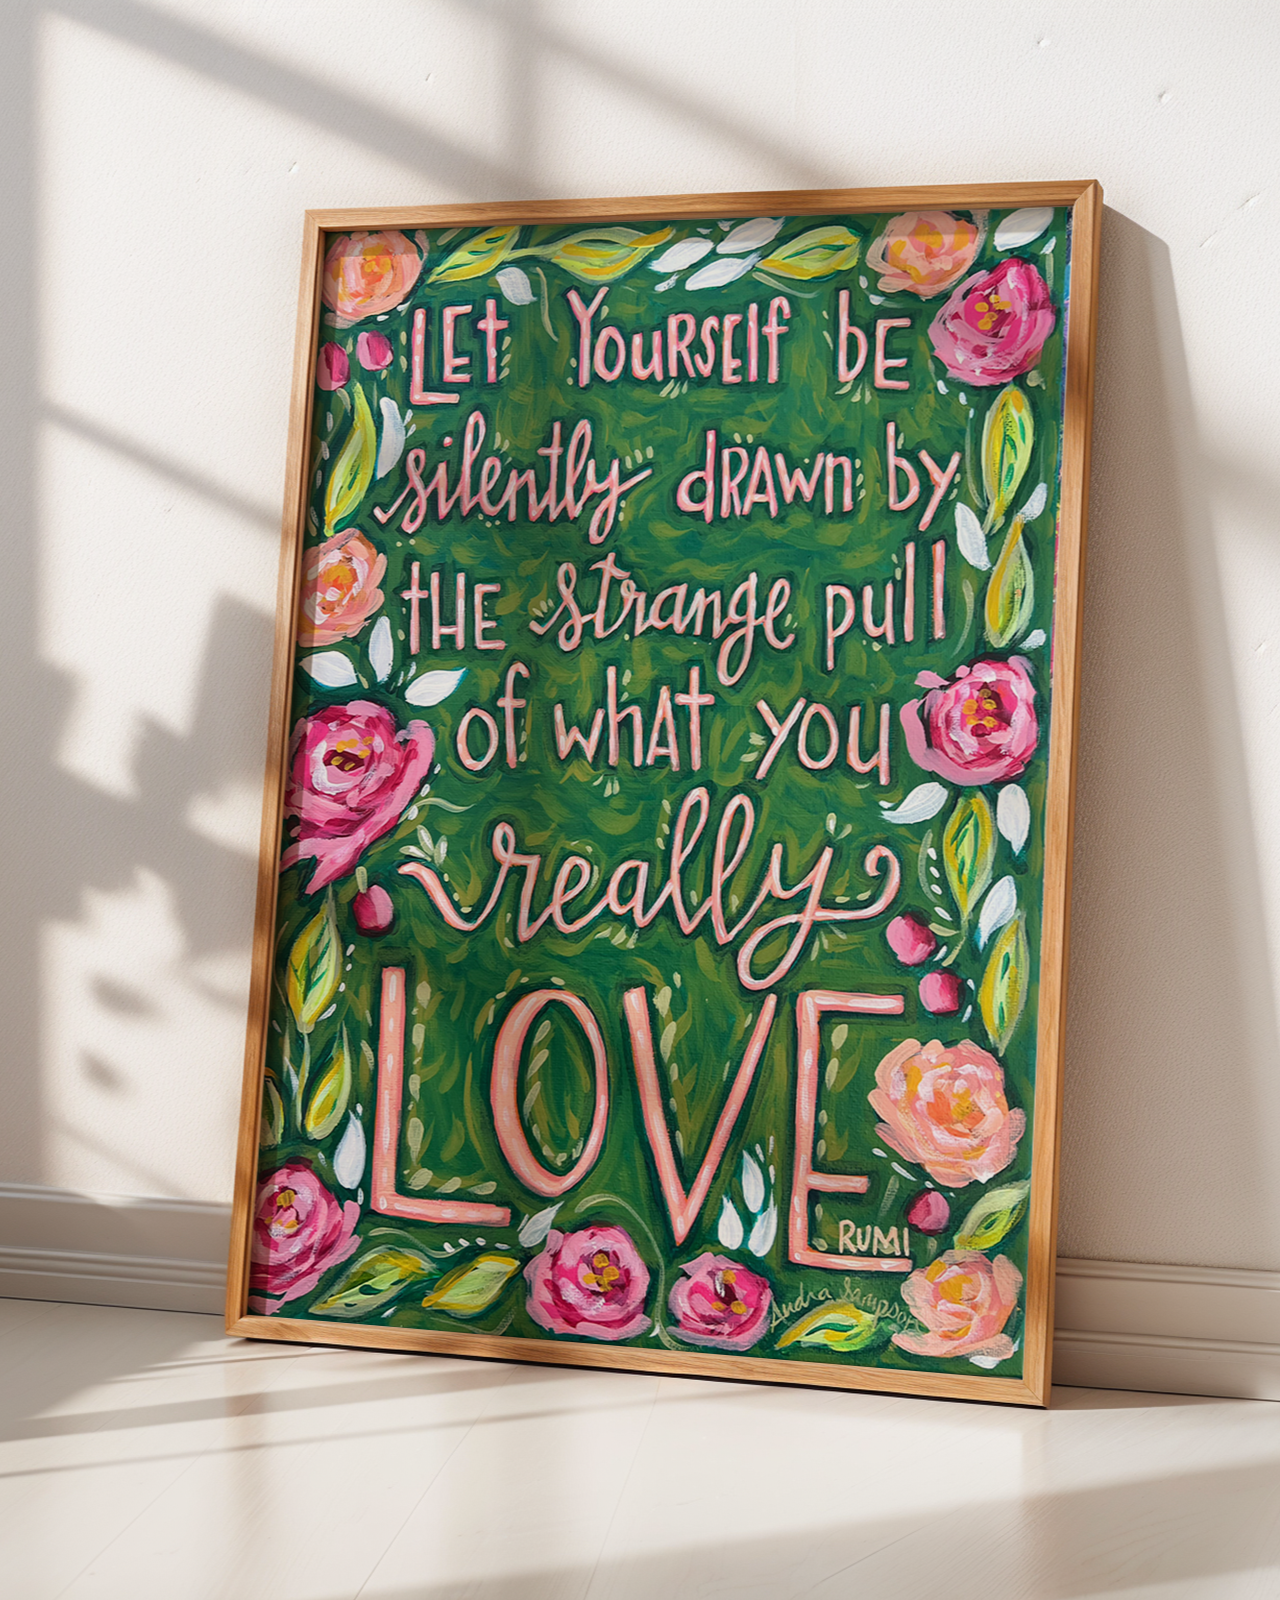 LEt YouRSElf bE
silently dRAwn by
tHE strange pull
of whAt you
really
LOVE
RUMI
Andra Sampson